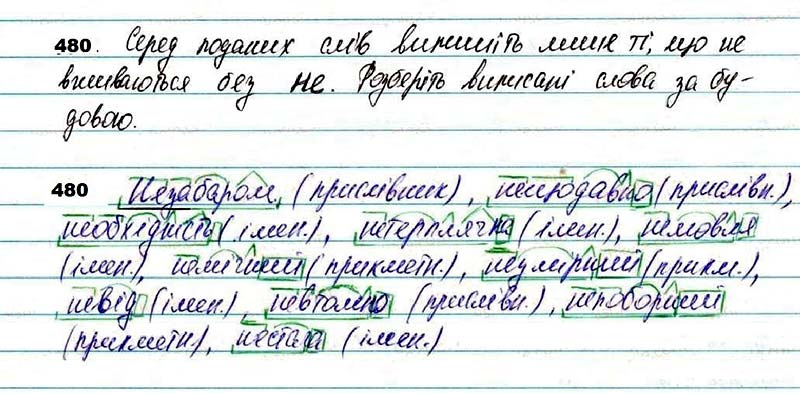 480. Серед поданих слів випишіть лише ті, що не
вживаються без не. Розберіть виписані слова за бу-
довою.
480 Незабаром, (прислівник), нещодавно (прислівн.),
необхідність (імен.), нетерплячка (імен.), немовля
(імен.), немічний (прикметн.), неумирний (прикм.),
невід (імен.), невтомно (прислівн.), непоборний
(прикметн.), нестача (імен.)